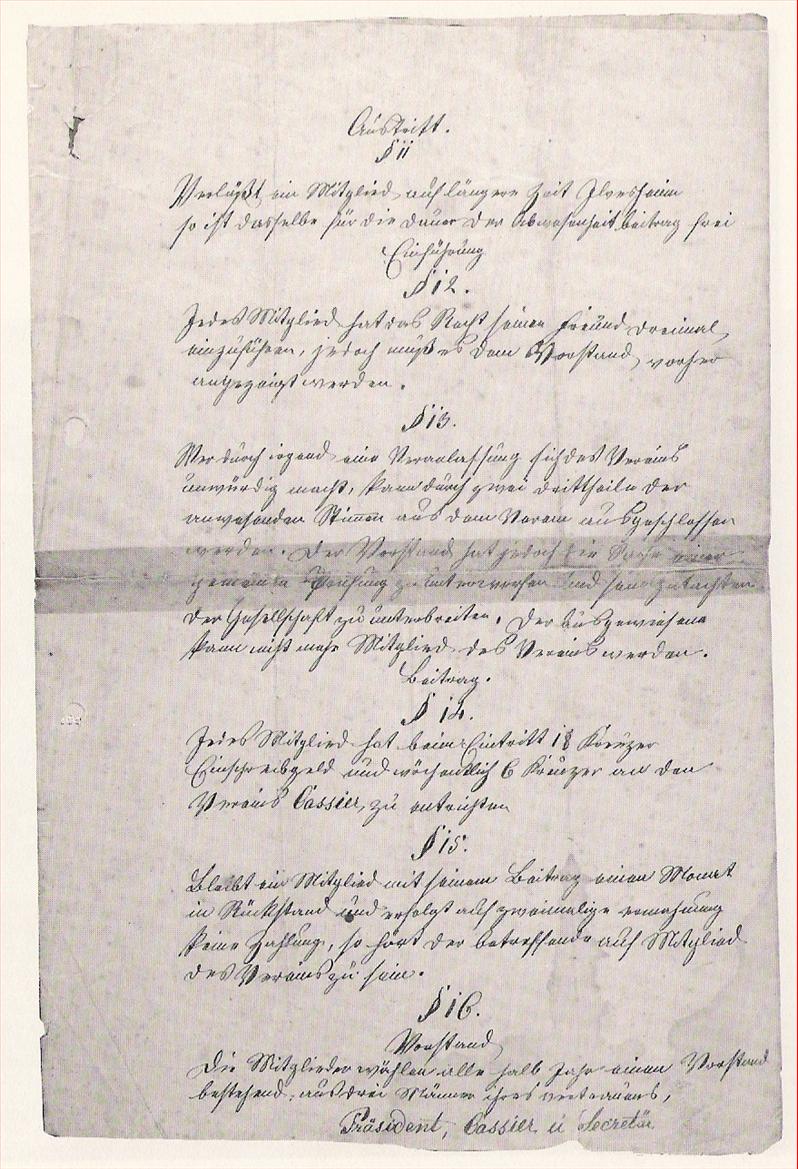 Austritt.
§ 11
Verläßt ein Mitglied auf längere Zeit Ilvesheim
so ist dasselbe für die dauer der Abwesenheit beitrag frei
Einführung
§ 12.
Jedes Mitglied hat das Recht seinen Freund dreimal
einzuführen, jedoch muß es dem Vorstand vorher
angezeigt werden.
§ 13.
Wer durch irgend eine Veranlassung sich des Vereins
unwürdig macht, kann durch zwei drittheile der
anwesenden Stimen aus dem Verein ausgeschlossen
werden. Der Vorstand hat jedoch die Sache einer
Prüfung zu unterwerfen und sein gutachten
der Gesellschaft zu unterbreiten. Der ausgewiesene
kann nicht mehr Mitglied des Vereins werden.
Beitrag.
§ 14.
Jedes Mitglied hat beim Eintritt 18 Kreuzer
Einschreibgeld und wöchentlich 6 Kreuzer an den
Vereins Cassier, zu entrichten
§ 15.
Bleibt ein Mitglied mit seinem Beitrag einen Monat
in Rückstand und erfolgt auf zweimalige ermahnung
keine Zahlung, so hört der betreffende auf Mitglied
des Vereins zu sein.
§ 16.
Vorstand
Die Mitglieder wählen alle halb Jahr einen Vorstand
bestehend, aus drei Männer ihres vertrauens,
Präsident, Cassier u Secretär